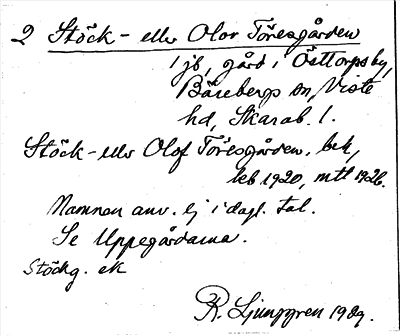 2 Stöck- ellr Olov Töresgården
i jb, gård i Östtorpsby,
Bärebergs sn, Viste
hd, Skarab. l.
Stöck- ellr Olof Töresgården. bek,
keb 1920, mtl 1926.
Namnen anv. ej i dagl. tal.
Se Uppegårdarna.
Stöckg. ek
R. Ljunggren 1929.